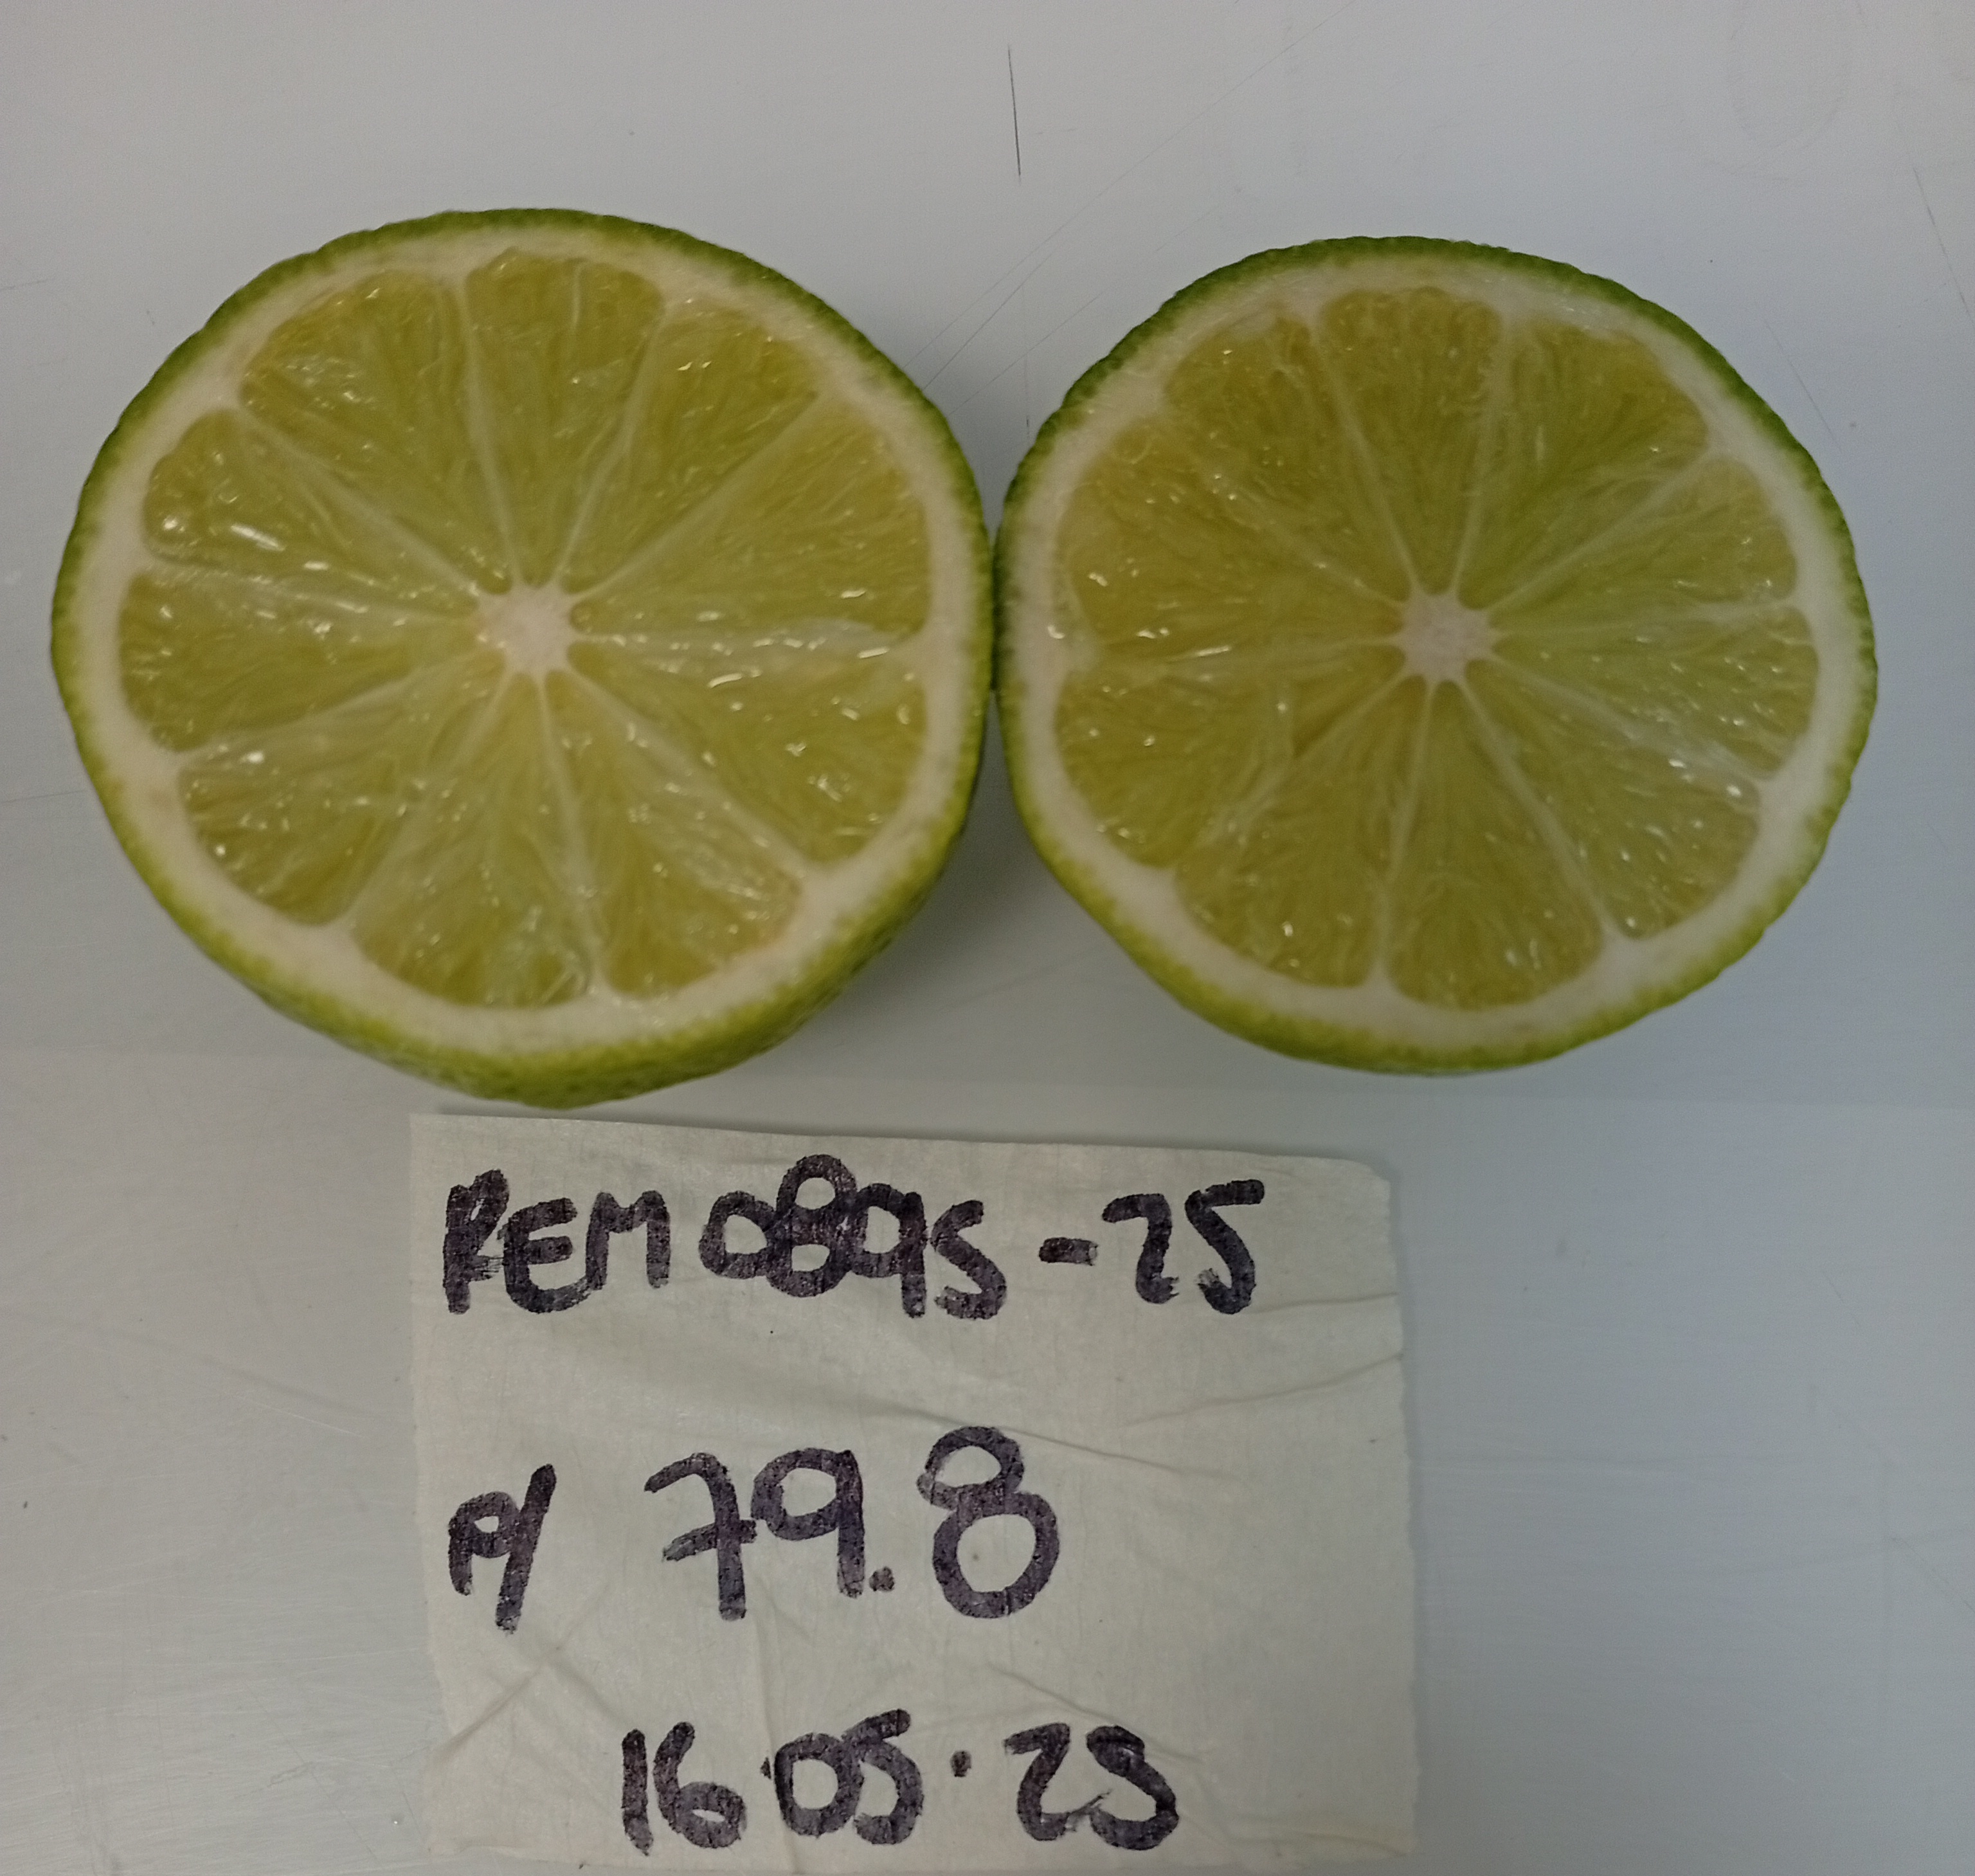 REM0895-25
P/ 79.8
16·05·25